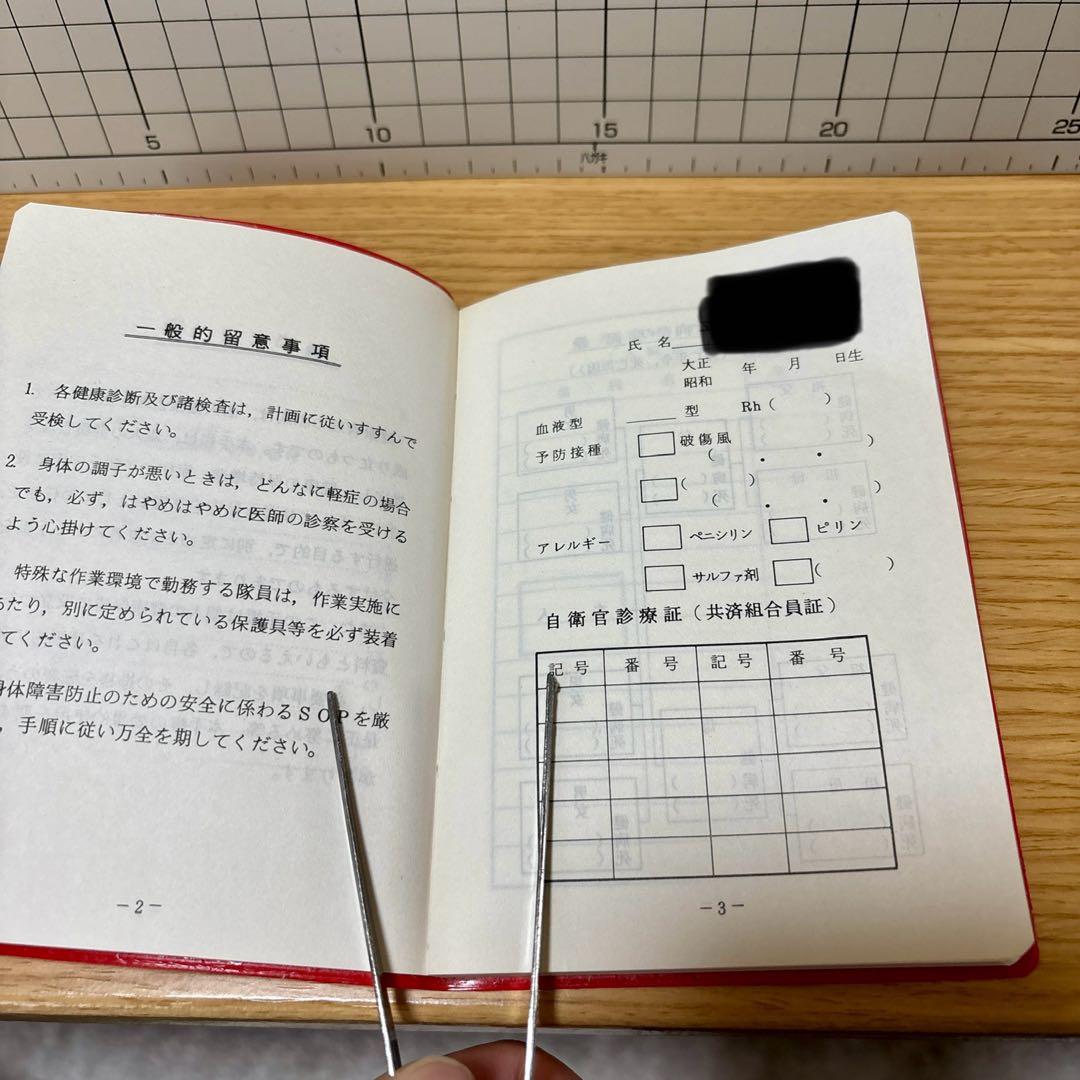 5 10 15 20 25
ハガキ
一般的留意事項
1. 各健康診断及び諸検査は，計画に従いすすんで
受検してください。
2. 身体の調子が悪いときは，どんなに軽症の場合
でも，必ず，はやめはやめに医師の診察を受ける
よう心掛けてください。
特殊な作業環境で勤務する隊員は，作業実施に
あたり，別に定められている保護具等を必ず装着
てください。
身体障害防止のための安全に係わるＳＯＰを厳
，手順に従い万全を期してください。
－2－
氏 名
大正
昭和 年 月 日生
血液型 型 Rh（ ）
予防接種 破傷風
（ ・ ・ ）
（ ）
（ ・ ・ ）
アレルギー ペニシリン ピリン
サルファ剤 （ ）
自衛官診療証（共済組合員証）
記号 番号 記号 番号
－3－